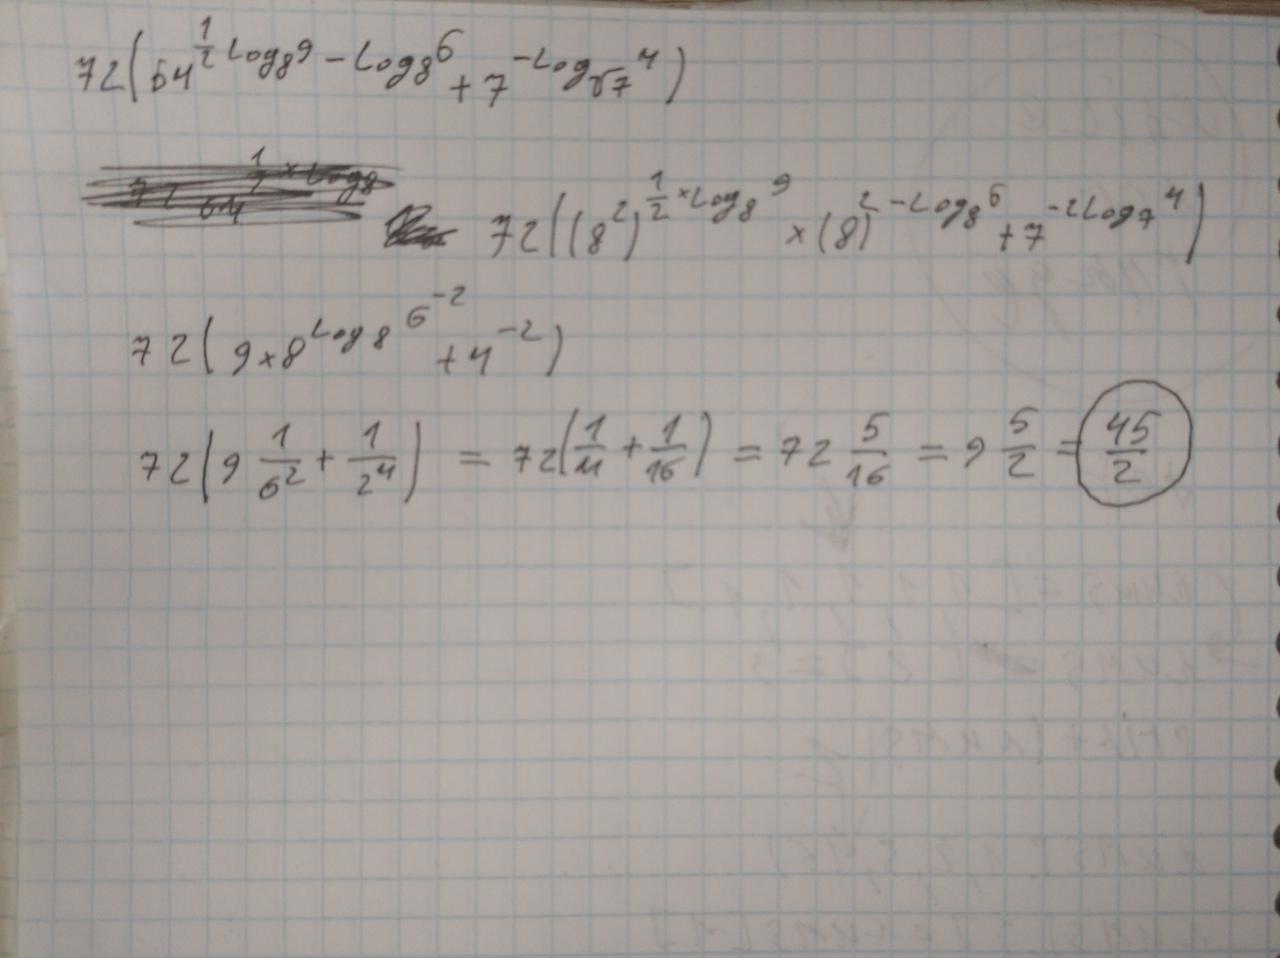 72(64^{1/2 Log_8 9 - Log_8 6} + 7^{-Log_{√7} 4})
72((8^2)^{1/2 × Log_8 9} × (8)^{2 - Log_8 6} + 7^{-2Log_7 4})
72(9 × 8^{Log_8 6^{-2}} + 4^{-2})
72(9 1/6^2 + 1/2^4) = 72(1/4 + 1/16) = 72 5/16 = 9 5/2 = 45/2